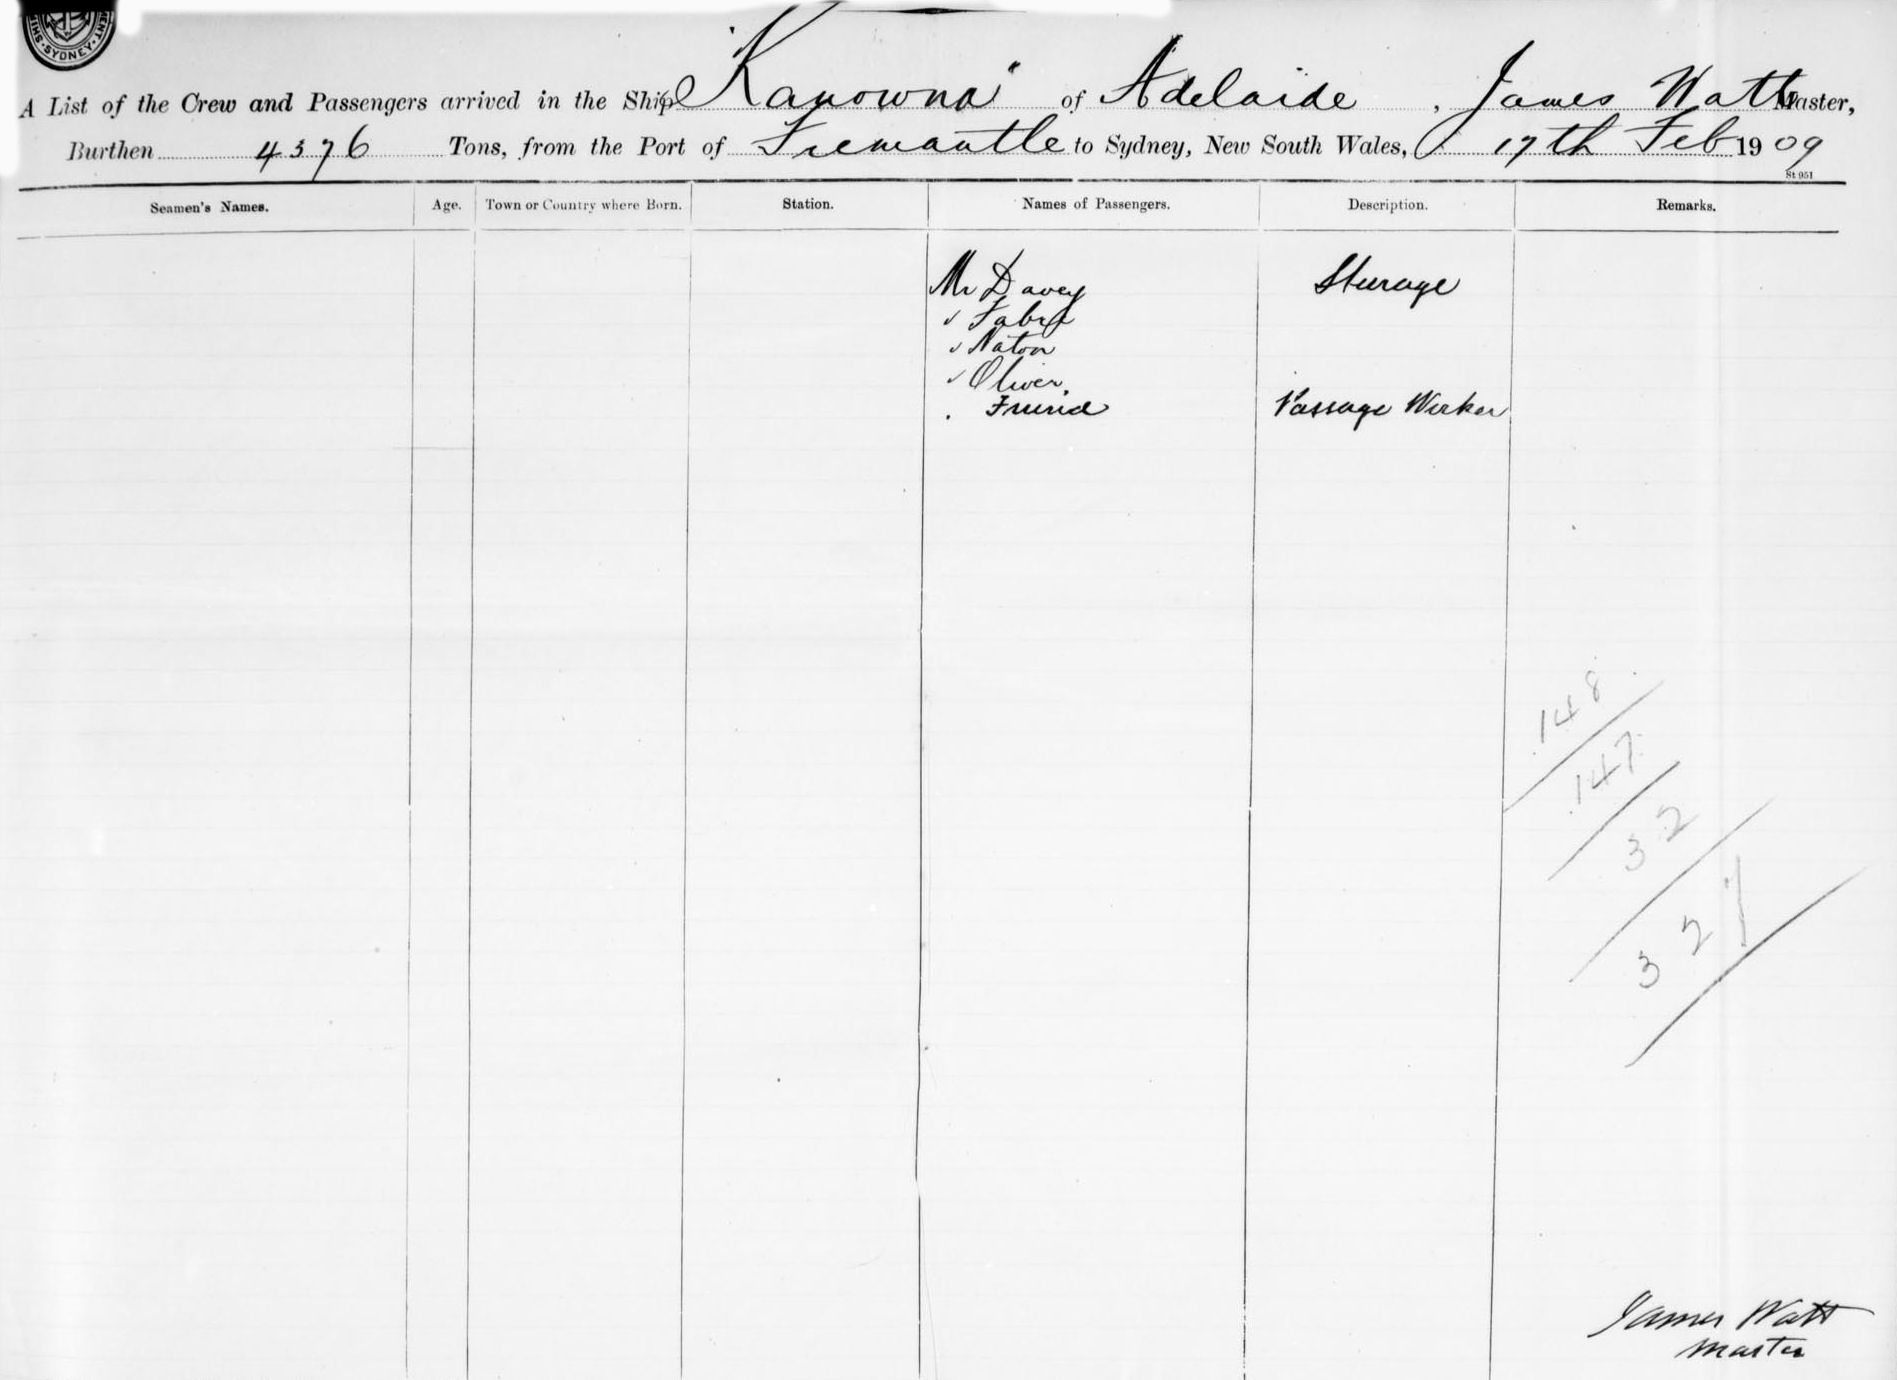 SYDNEY
A List of the Crew and Passengers arrived in the Ship "Kanowna" of Adelaide, James Watt Master,
Burthen 4376 Tons, from the Port of Fremantle to Sydney, New South Wales, 17th Feb 1909
St 951
Seamen's Names. Age. Town or Country where Born. Station. Names of Passengers. Description. Remarks.
Mr Davey Steerage
" Naton
" Oliver
Friend Passage Worker
148
147
32
327
James Watt
Master